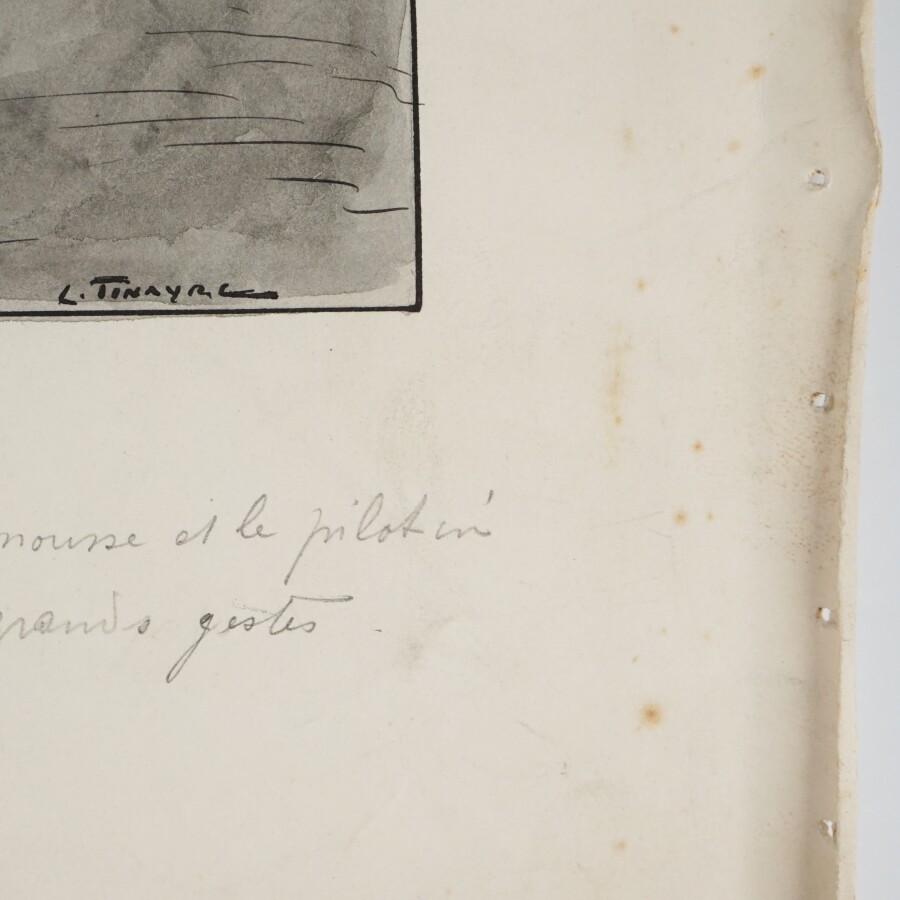 L. TINAYRE
mousse et le pilotin
grands gestes.